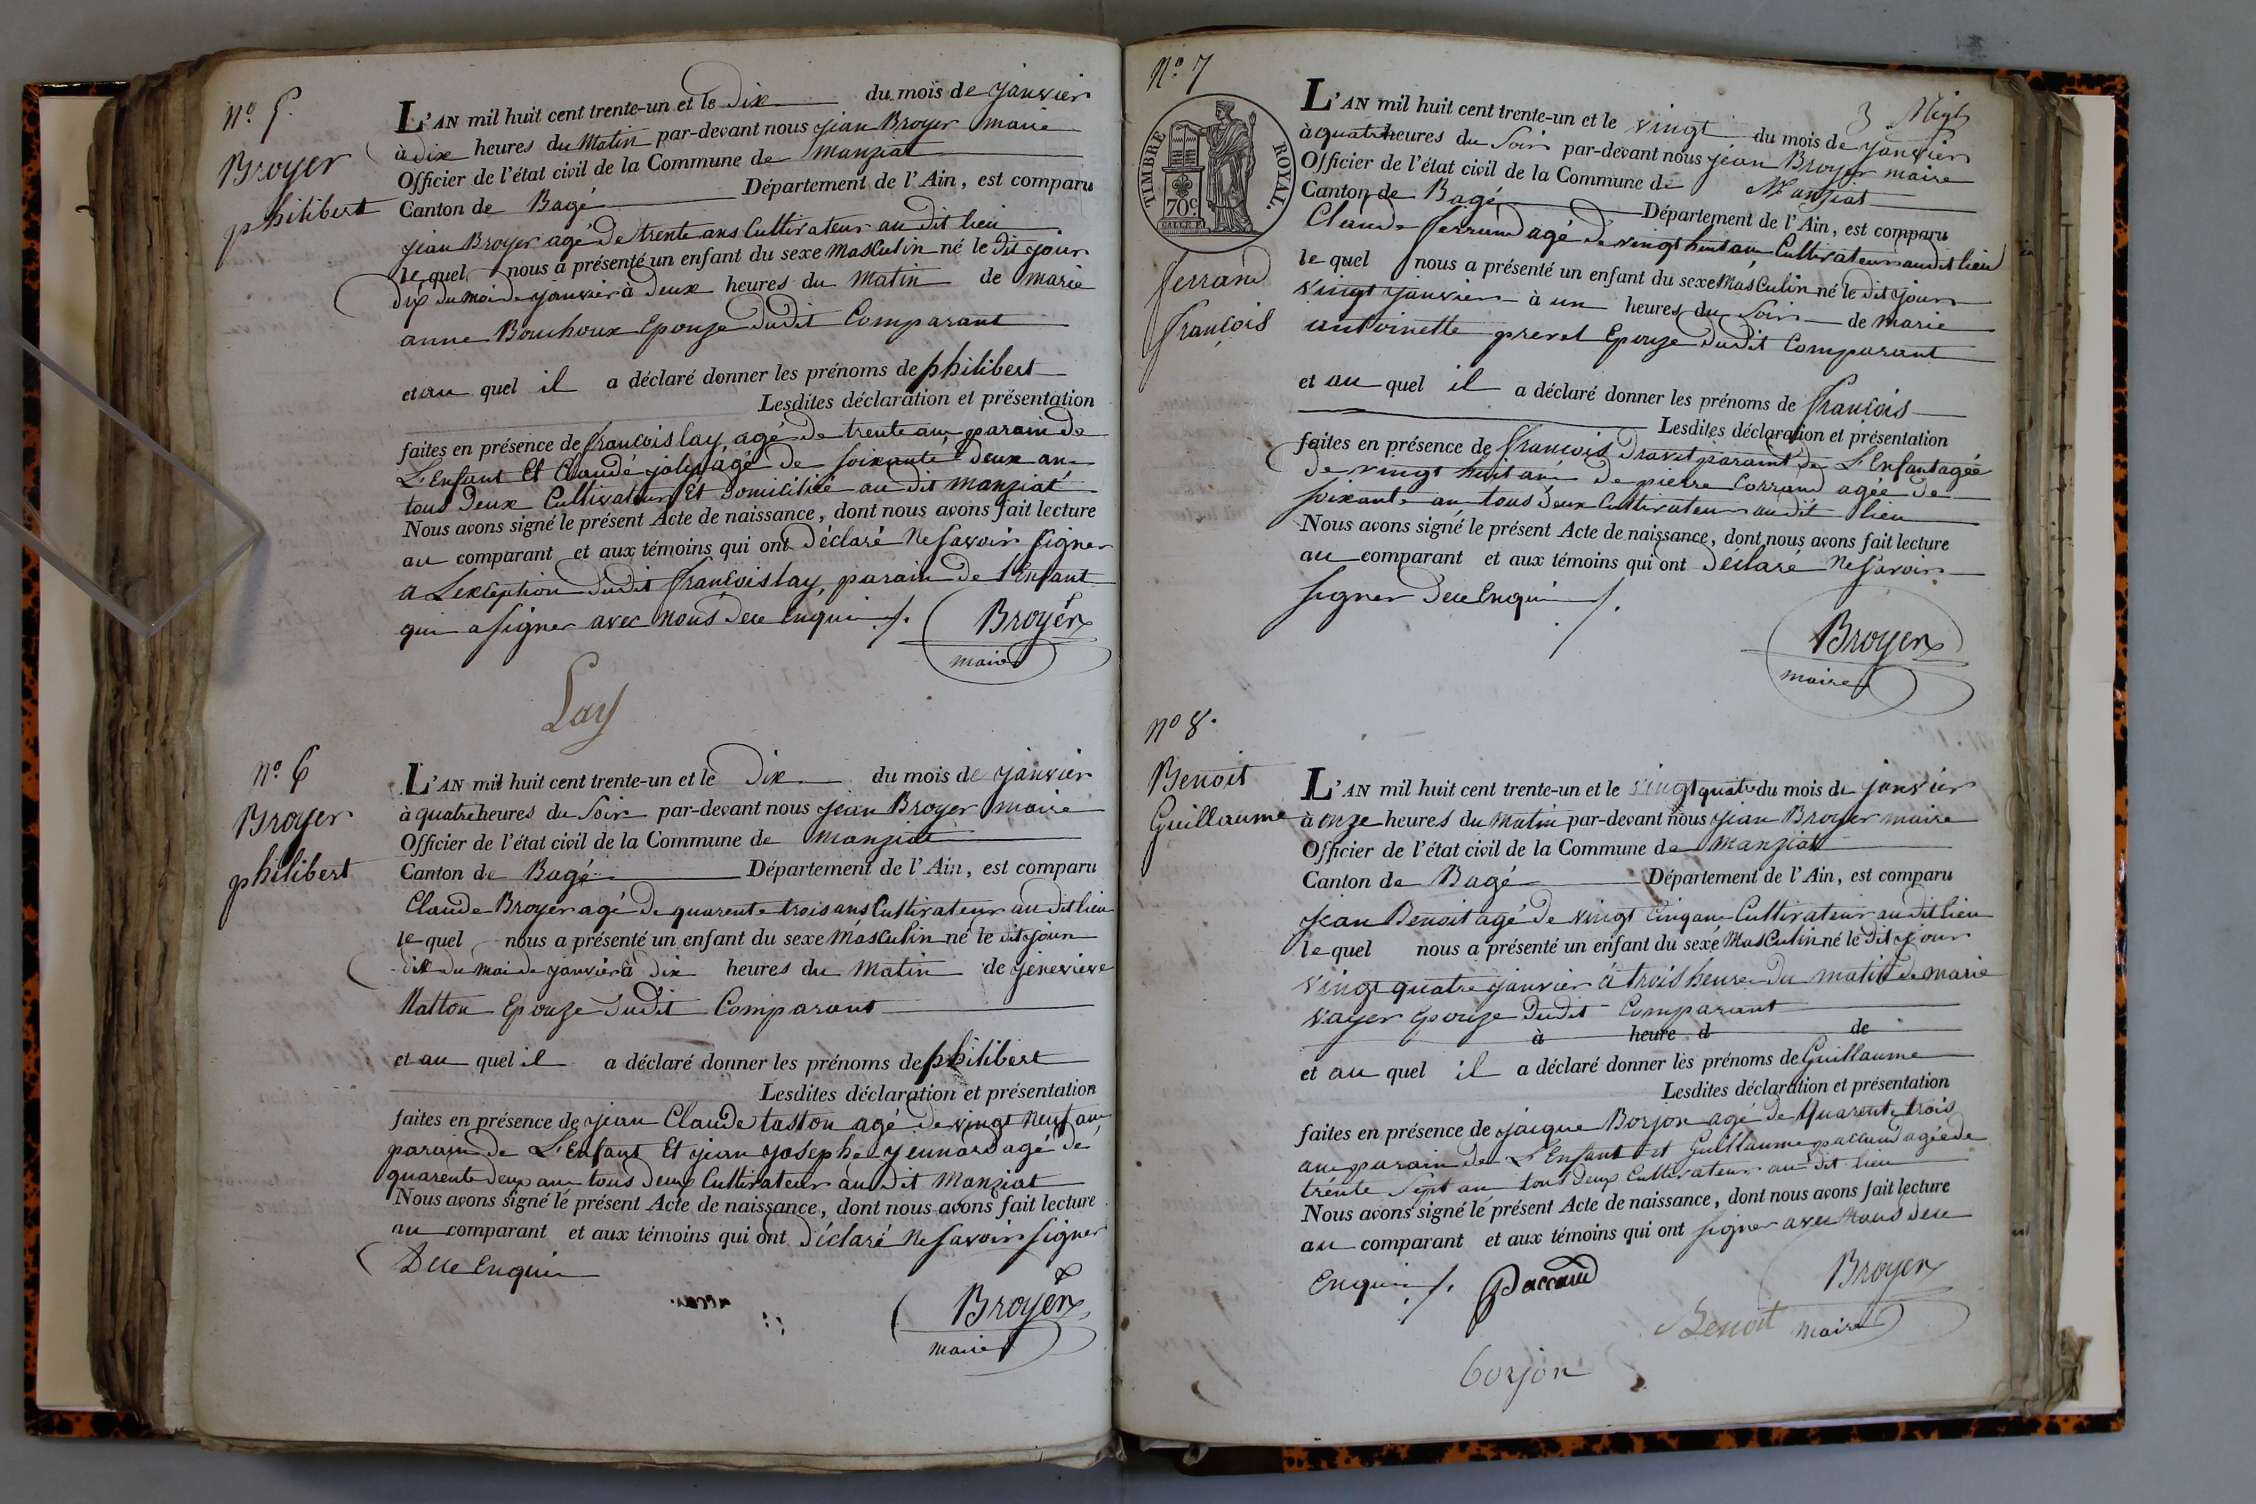 N.o 5.
Broyer
philibert
L'AN mil huit cent trente-un et le Dix du mois de janvier
à dix heures du Matin par-devant nous jean Broyer maire
Officier de l'état civil de la Commune de Manziat
Canton de Bagé Département de l'Ain, est comparu
jean Broyer agé de trente ans Cultivateur au dit lieu
le quel nous a présenté un enfant du sexe Masculin né le dit jour
dix du moi de janvier à deux heures du Matin de Marie
anne Bouchoux Epouze dudit Comparant
et au quel il a déclaré donner les prénoms de philibert
Lesdites déclaration et présentation
faites en présence de francois lay agé de trente an parain de
L'Enfant Et Claude joly agé de soixante deux an
tous deux Cultivateur Et domicilié au dit manziat
Nous avons signé le présent Acte de naissance, dont nous avons fait lecture
au comparant et aux témoins qui ont déclaré Ne savoir signer
a L'exception dudit francois lay, parain de l'Enfant
qui a signer avec nous dece Enquis ./.
Broyer
maire
Lay
N.o 6
Broyer
philibert
L'AN mil huit cent trente-un et le Dix du mois de janvier
à quatre heures du Soir par-devant nous jean Broyer maire
Officier de l'état civil de la Commune de Manziat
Canton de Bagé Département de l'Ain, est comparu
Claude Broyer agé de quarente trois ans Cultivateur au dit lieu
le quel nous a présenté un enfant du sexe Masculin né le dit jour
dix du moi de janvier à dix heures du Matin de genevieve
Matton Epouze dudit Comparant
et au quel il a déclaré donner les prénoms de philibert
Lesdites déclaration et présentation
faites en présence de jean Claude taston agé de vingt Neuf an
parain de L'Enfant Et jean josephe yennard agé de
quarente deux an tous deux Cultivateur au dit Manziat
Nous avons signé le présent Acte de naissance, dont nous avons fait lecture
au comparant et aux témoins qui ont déclaré Ne savoir signer
Dece Enquis
Broyer
maire
N.o 7
TIMBRE ROYAL.
70c
ferrand
françois
L'AN mil huit cent trente-un et le vingt du mois de janvier
à quatre heures du Soir par-devant nous jean Broyer maire
Officier de l'état civil de la Commune de Manziat
Canton de Bagé Département de l'Ain, est comparu
Claude ferrand agé de vingt huit an Cultivateur audit lieu
le quel nous a présenté un enfant du sexe Masculin né le dit jour
vingt janvier à un heures du Soir de Marie
antoinette prevel Epouze dudit Comparant
et au quel il a déclaré donner les prénoms de francois
Lesdites déclaration et présentation
faites en présence de francois paraint de L'Enfant agée
de vingt huit an de pierre agée de
soixante an tous deux Cultivateur audit lieu
Nous avons signé le présent Acte de naissance, dont nous avons fait lecture
au comparant et aux témoins qui ont déclaré Ne savoir
signer dece Enquis ./.
Broyer
maire
N.o 8.
Benoit
Guillaume
L'AN mil huit cent trente-un et le vingt quatre du mois de janvier
à onze heures du Matin par-devant nous jean Broyer maire
Officier de l'état civil de la Commune de Manziat
Canton de Bagé Département de l'Ain, est comparu
jean Benoit agé de vingt cinq an Cultivateur au dit lieu
le quel nous a présenté un enfant du sexe Masculin né le dit jour
vingt quatre janvier à trois heure du matin de marie
vayer Epouze dudit Comparant
à heure d de
et au quel il a déclaré donner les prénoms de Guillaume
Lesdites déclaration et présentation
faites en présence de jacque Borjon agé de Quarente trois
an parain de L'Enfant et Guillaume paccaud agée de
trente sept an tous deux Cultivateur au dit lieu
Nous avons signé le présent Acte de naissance, dont nous avons fait lecture
au comparant et aux témoins qui ont signer avec Nous dece
Enquis ./. Paccaud
Broyer
Benoit maire
borjon